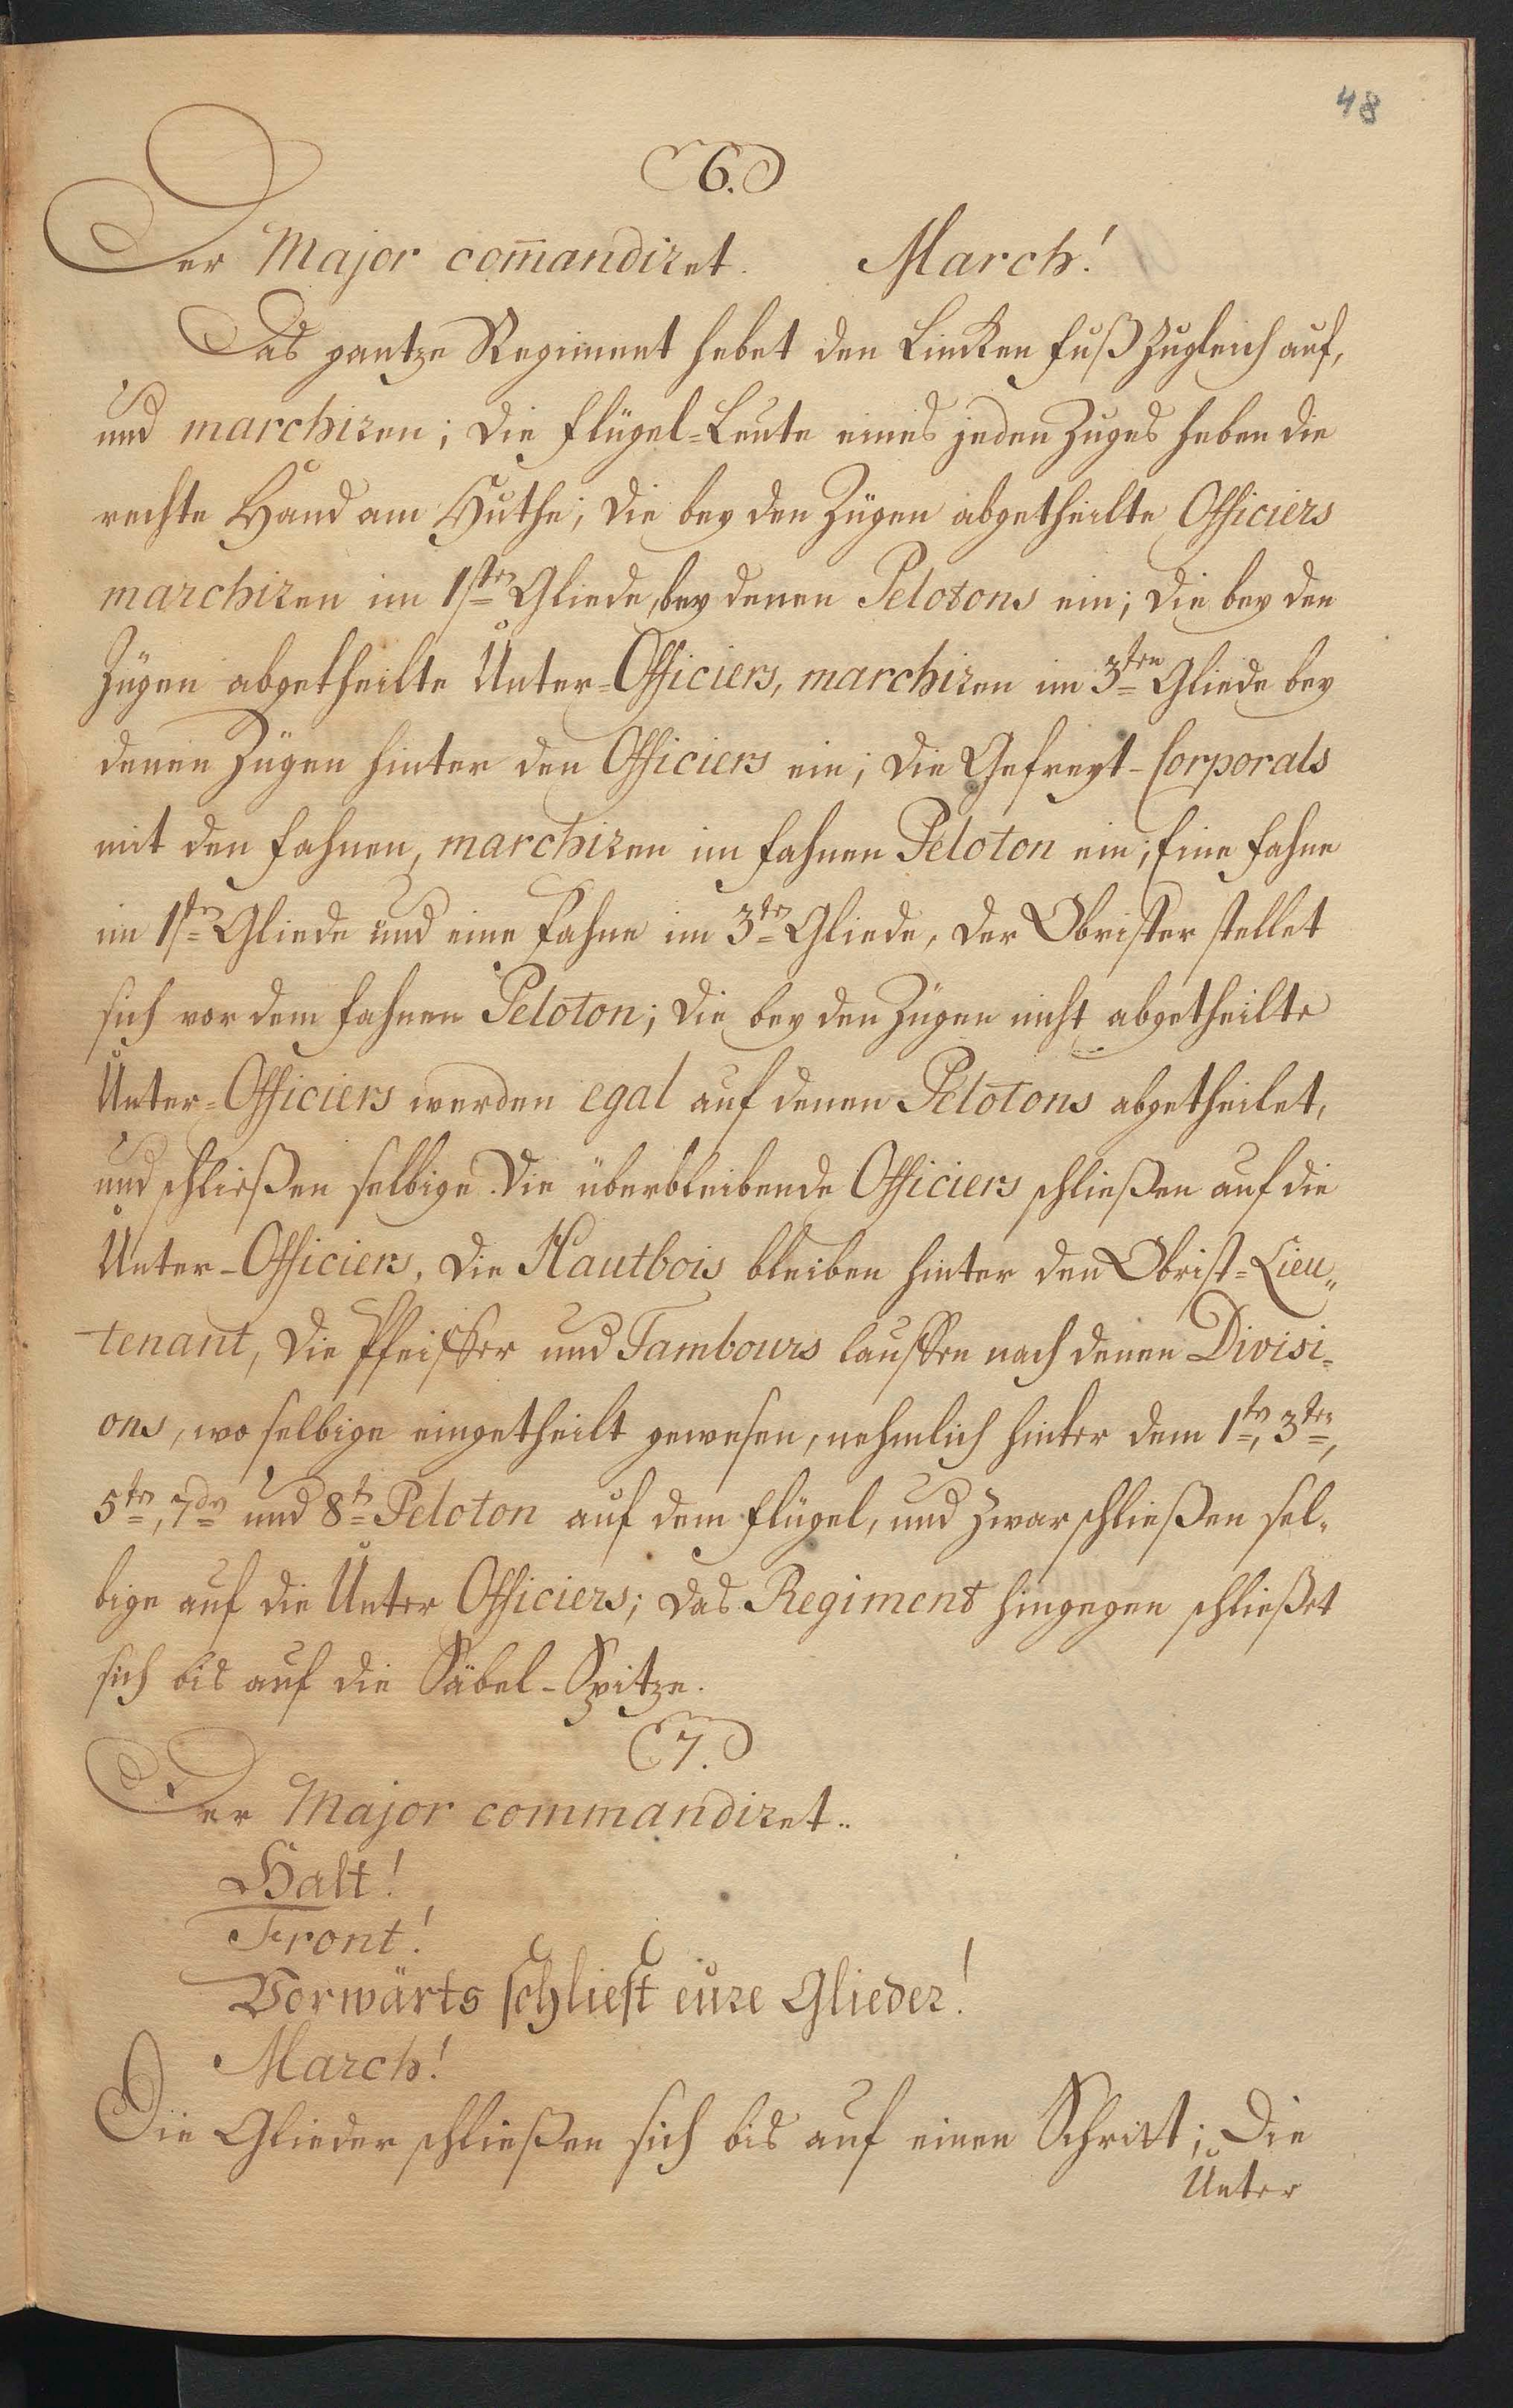 48
6.
Der Major com̄andiret. March!
Das gantze Regiment hebet den Lincken Fuß zugleich auf,
und marchiren; die Flügel-Leute eines jeden Zuges heben die
rechte Hand am Huthe; die bey den Zügen abgetheilte Officiers
marchiren im 1sten Gliede, bey denen Pelotons ein; die bey den
Zügen abgetheilte Unter-Officiers, marchiren im 3ten Gliede bey
denen Zügen hinter den Officiers ein; die Gefreyt-Corporals
mit den Fahnen, marchiren im Fahnen Peloton ein; Eine Fahne
im 1sten Gliede und eine Fahne im 3ten Gliede, der Obrister stellet
sich vor dem Fahnen Peloton; die bey den Zügen nicht abgetheilte
Unter-Officiers werden egal auf denen Pelotons abgetheilet,
und schließen selbige. Die überbleibende Officiers schließen auf die
Unter-Officiers, die Hautbois bleiben hinter den Obrist-Lieu„
tenant, die Pfeiffer und Tambours lauffen nach denen Divisi=
ons, wo selbige eingetheilt gewesen, nehmlich hinter dem 1ten, 3ten,
5ten, 7den und 8ten Peloton auf dem Flügel, und zwar schließen sel-
bige auf die Unter Officiers; das Regiment hingegen schließet
sich bis auf die Säbel-Spitze.
7.
Der Major commandiret..
Halt!
Front!
Vorwärts schliest eure Glieder!
March!
Die Glieder schließen sich bis auf einen Schritt; Die
Unter